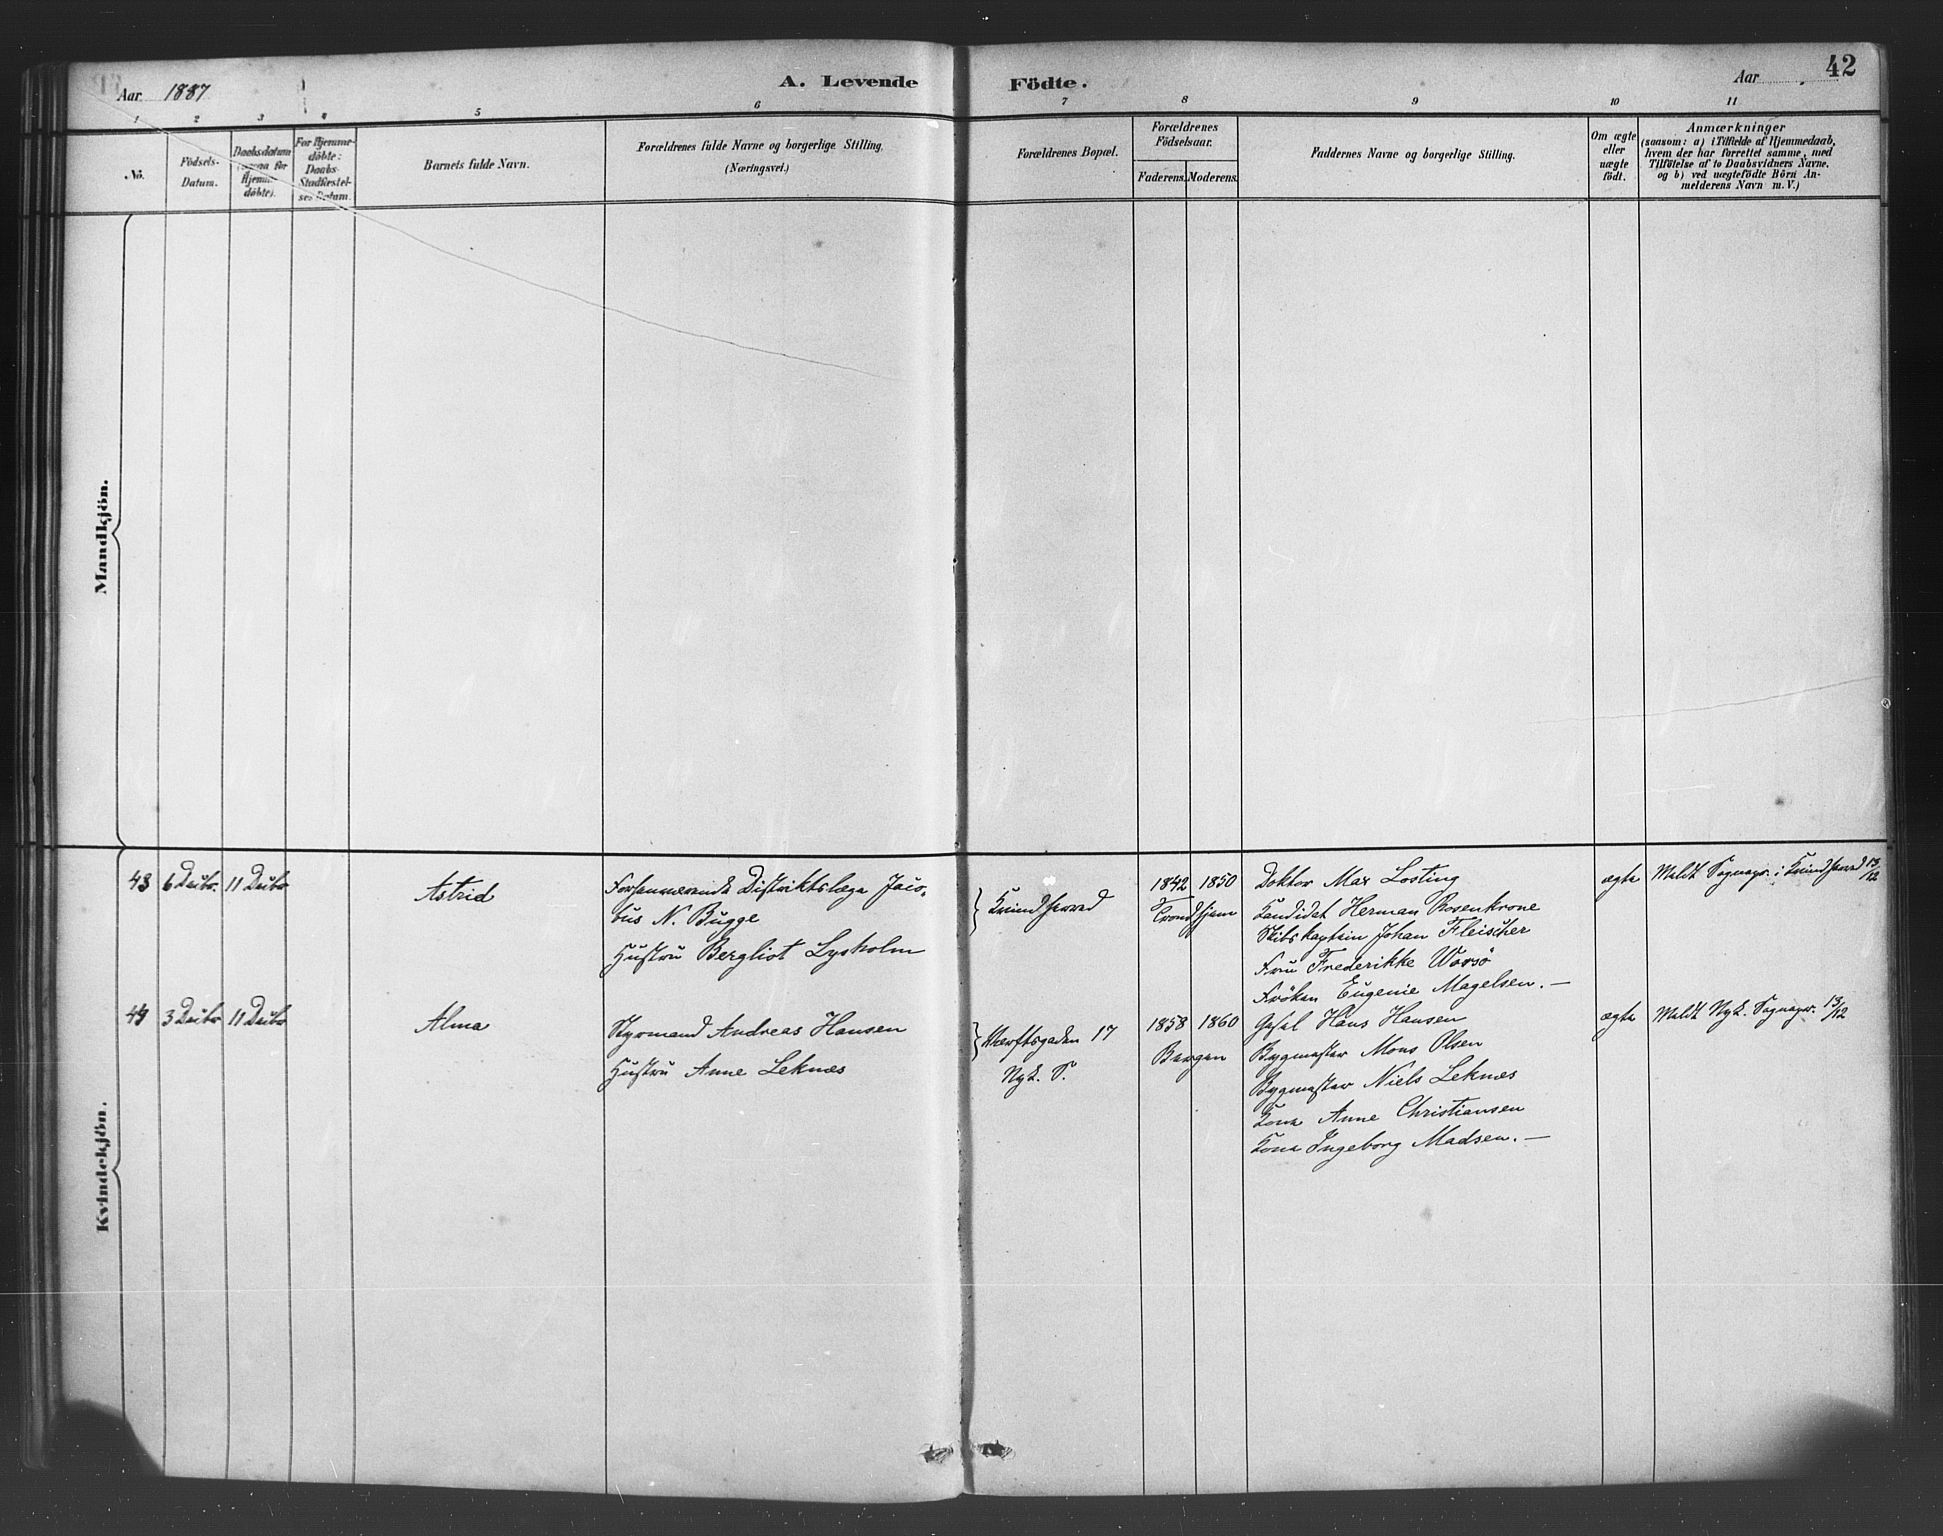 Aar 1887
A. Levende Födte.
Aar
42
1 2 3 4 5 6 7 8 9 10 11
No.
Födsels-
Datum.
Daabsdatum
Hjemme-
döbte).
For Hjemme-
döbte:
Daabs-
Stadfæstel-
ses Datum.
Barnets fulde Navn.
Forældrenes fulde Navne og borgerlige Stilling.
(Næringsvei.)
Forældrenes Bopæl.
Forældrenes
Födselsaar.
Faderens. Moderens.
Faddernes Navne og borgerlige Stilling.
Om ægte
eller
uægte
födt.
Anmærkninger
(saasom: a) i Tilfælde af Hjemmedaab,
hvem der har forrettet samme, med
Tilföielse af to Daabsvidners Navne,
og b) ved uægtefödte Börn An-
melderens Navn m. V.)
Mandkjön.
Kvindekjön.
43 6 Decbr. 11 Decbr
Astrid
Forhenværende Distriktslæge Jaco-
bus N. Bugge
Hustru Bergliot Lysholm
Kvindherred
1842 1850
Trondhjem
Doktor Max Losting
Kandidat Herman Rosenkrone
Skibskaptein Johan Fleischer
Fru Frederikke Worsö
Fröken Eugenie Magelsen. —
ægte
Meldt Sognepr. i Kvindherred 13/12
44 3 Decbr 11 Decbr
Alma
Styrmand Andreas Hansen
Hustru Anne Leknæs
Værftsgaden 17
Nyk. S.
1858 1860
Bergen
Gesel Hans Hansen
Bygmester Mons Olsen
Bygmester Niels Leknæs
Kone Anne Christiansen
Kone Ingeborg Madsen. —
ægte
Meldt Nyk. Sognepr. 13/12